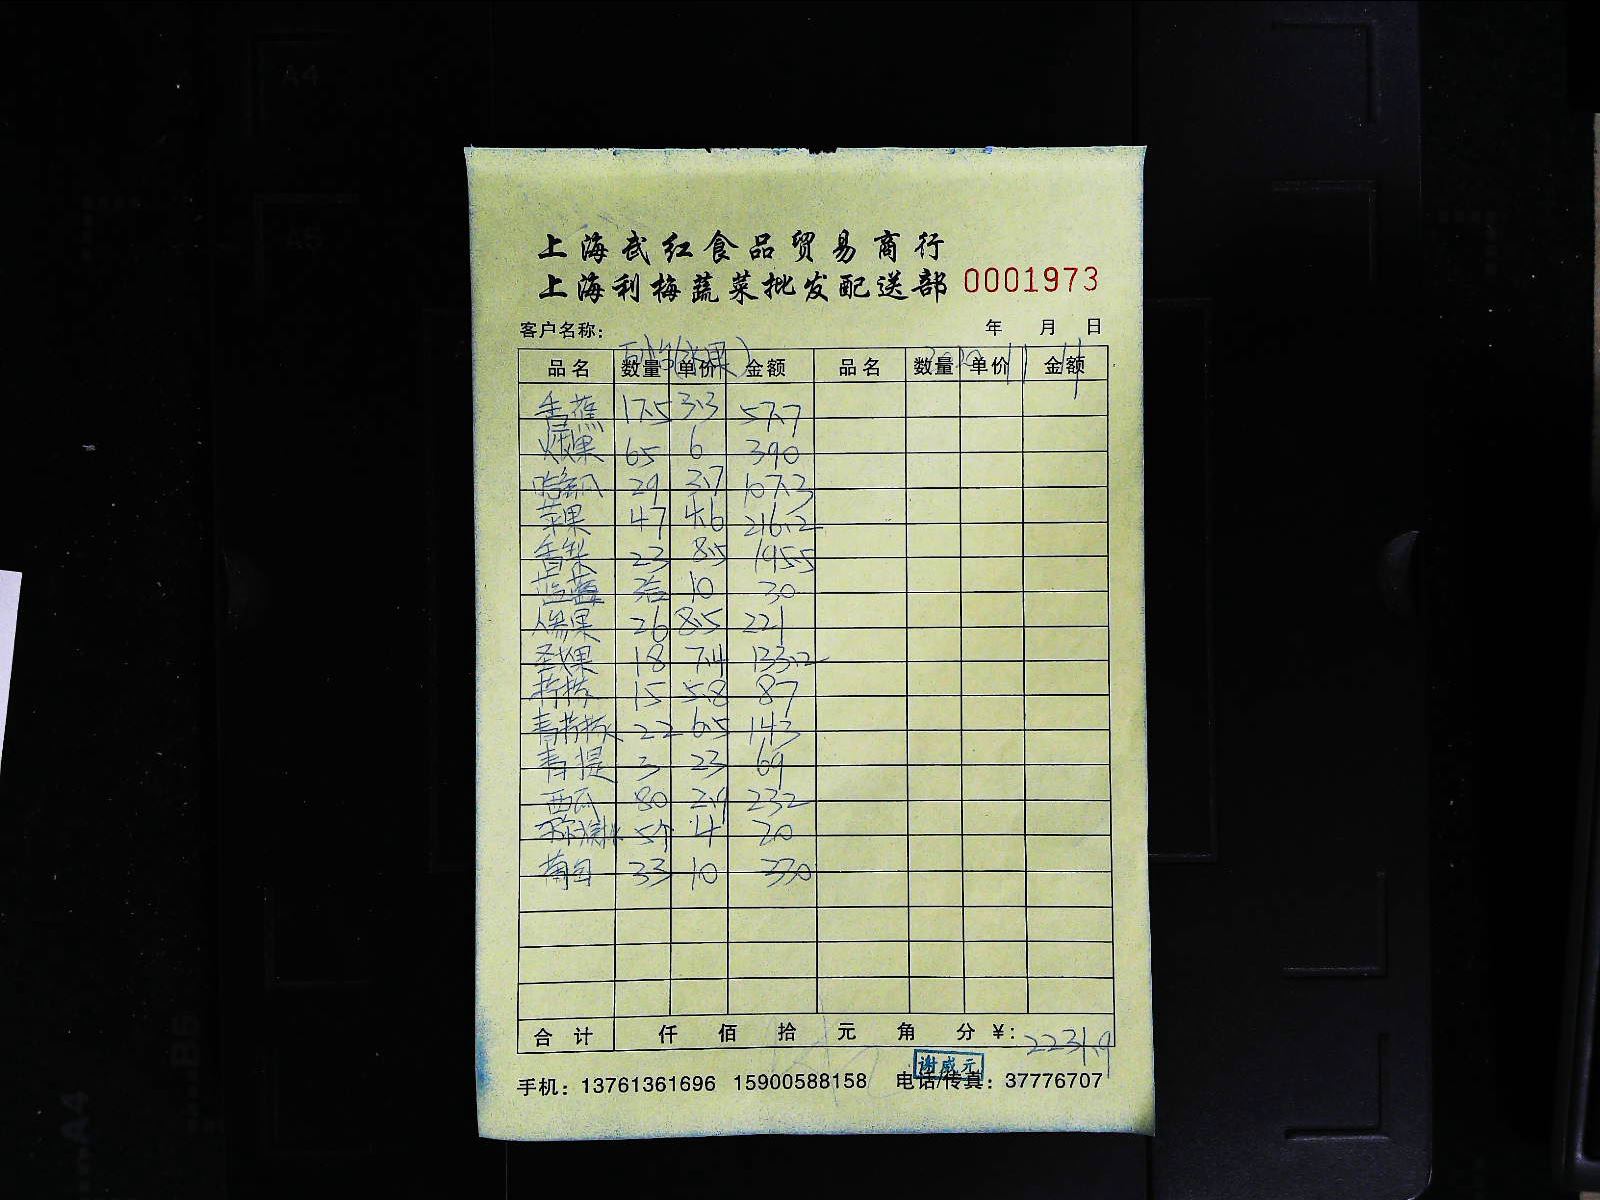 上海武红食品贸易商行
上海利梅蔬菜批发配送部 0001973
客户名称： 年 月 日
(水果)
品名 数量 单价 金额 品名 数量 单价 金额
香蕉 17.5 3.3 57.7
火龙果 65 6 390
哈密瓜 29 3.7 107.3
苹果 47 4.6 216.2
香梨 23 8.5 195.5
蓝莓 3盒 10 30
人参果 26 8.5 221
圣女果 18 7.4 133.2
桔 15 5.8 87
青桔 22 6.5 143
青提 3 23 69
西瓜 80 2.9 232
5个 4 20
葡萄 33 10 330
合计 仟 佰 拾 元 角 分 ¥: 2231.9
谢威元
手机：13761361696 15900588158 电话/传真：37776707